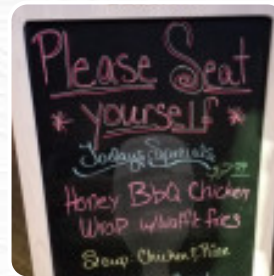 Please Seat
* yourself *
Today's Specials
Honey BBQ Chicken
Wrap w/waffle fries
Soup: Chicken & Rice